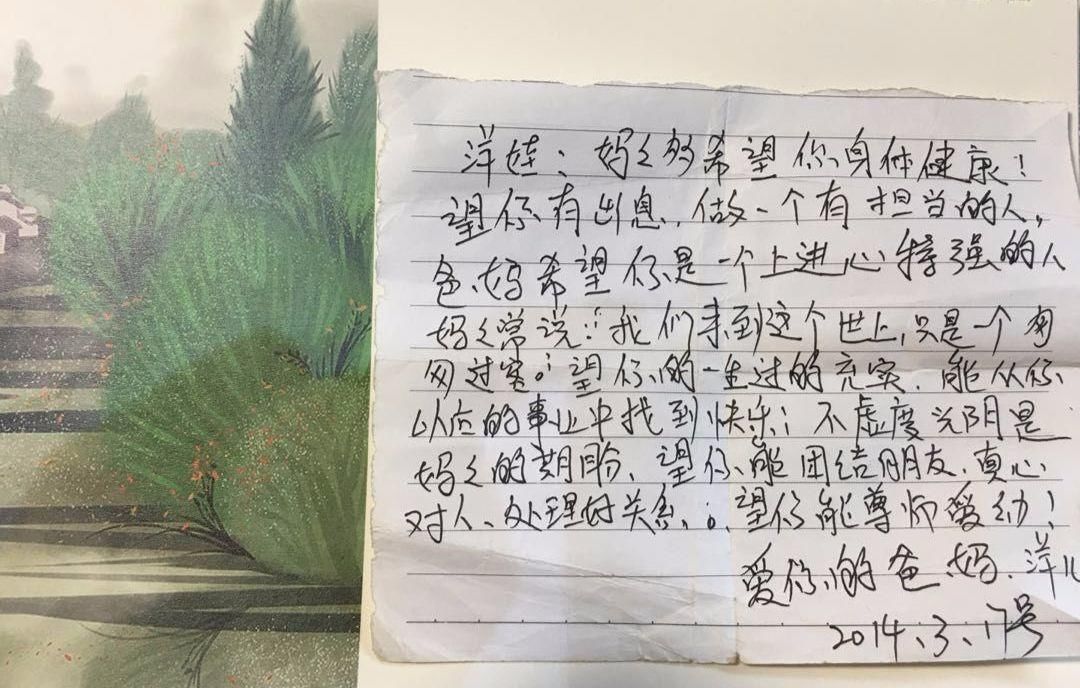 洋娃：妈々多希望你身体健康！
望你有出息、做一个有担当的人，
爸、妈希望你是一个上进心特强的人
妈々常说：我们来到这个世上，只是一个
过客。望你的一生过的充实，能从你
的事业中找到快乐；不虚度光阴是
妈々的期盼、望你能团结朋友、真心
对人、处理好关系、。望你能尊师爱幼！
爱你的爸、妈、洋儿
2014、3、17号